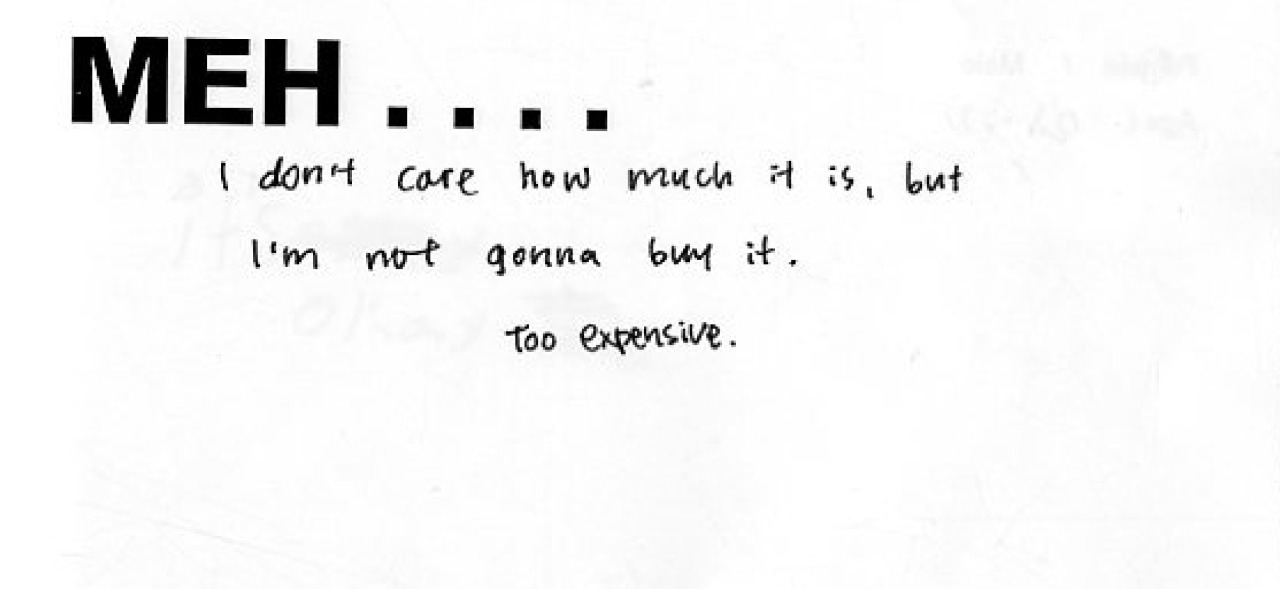 MEH....
I don't care how much it is, but
I'm not gonna buy it.
too expensive.